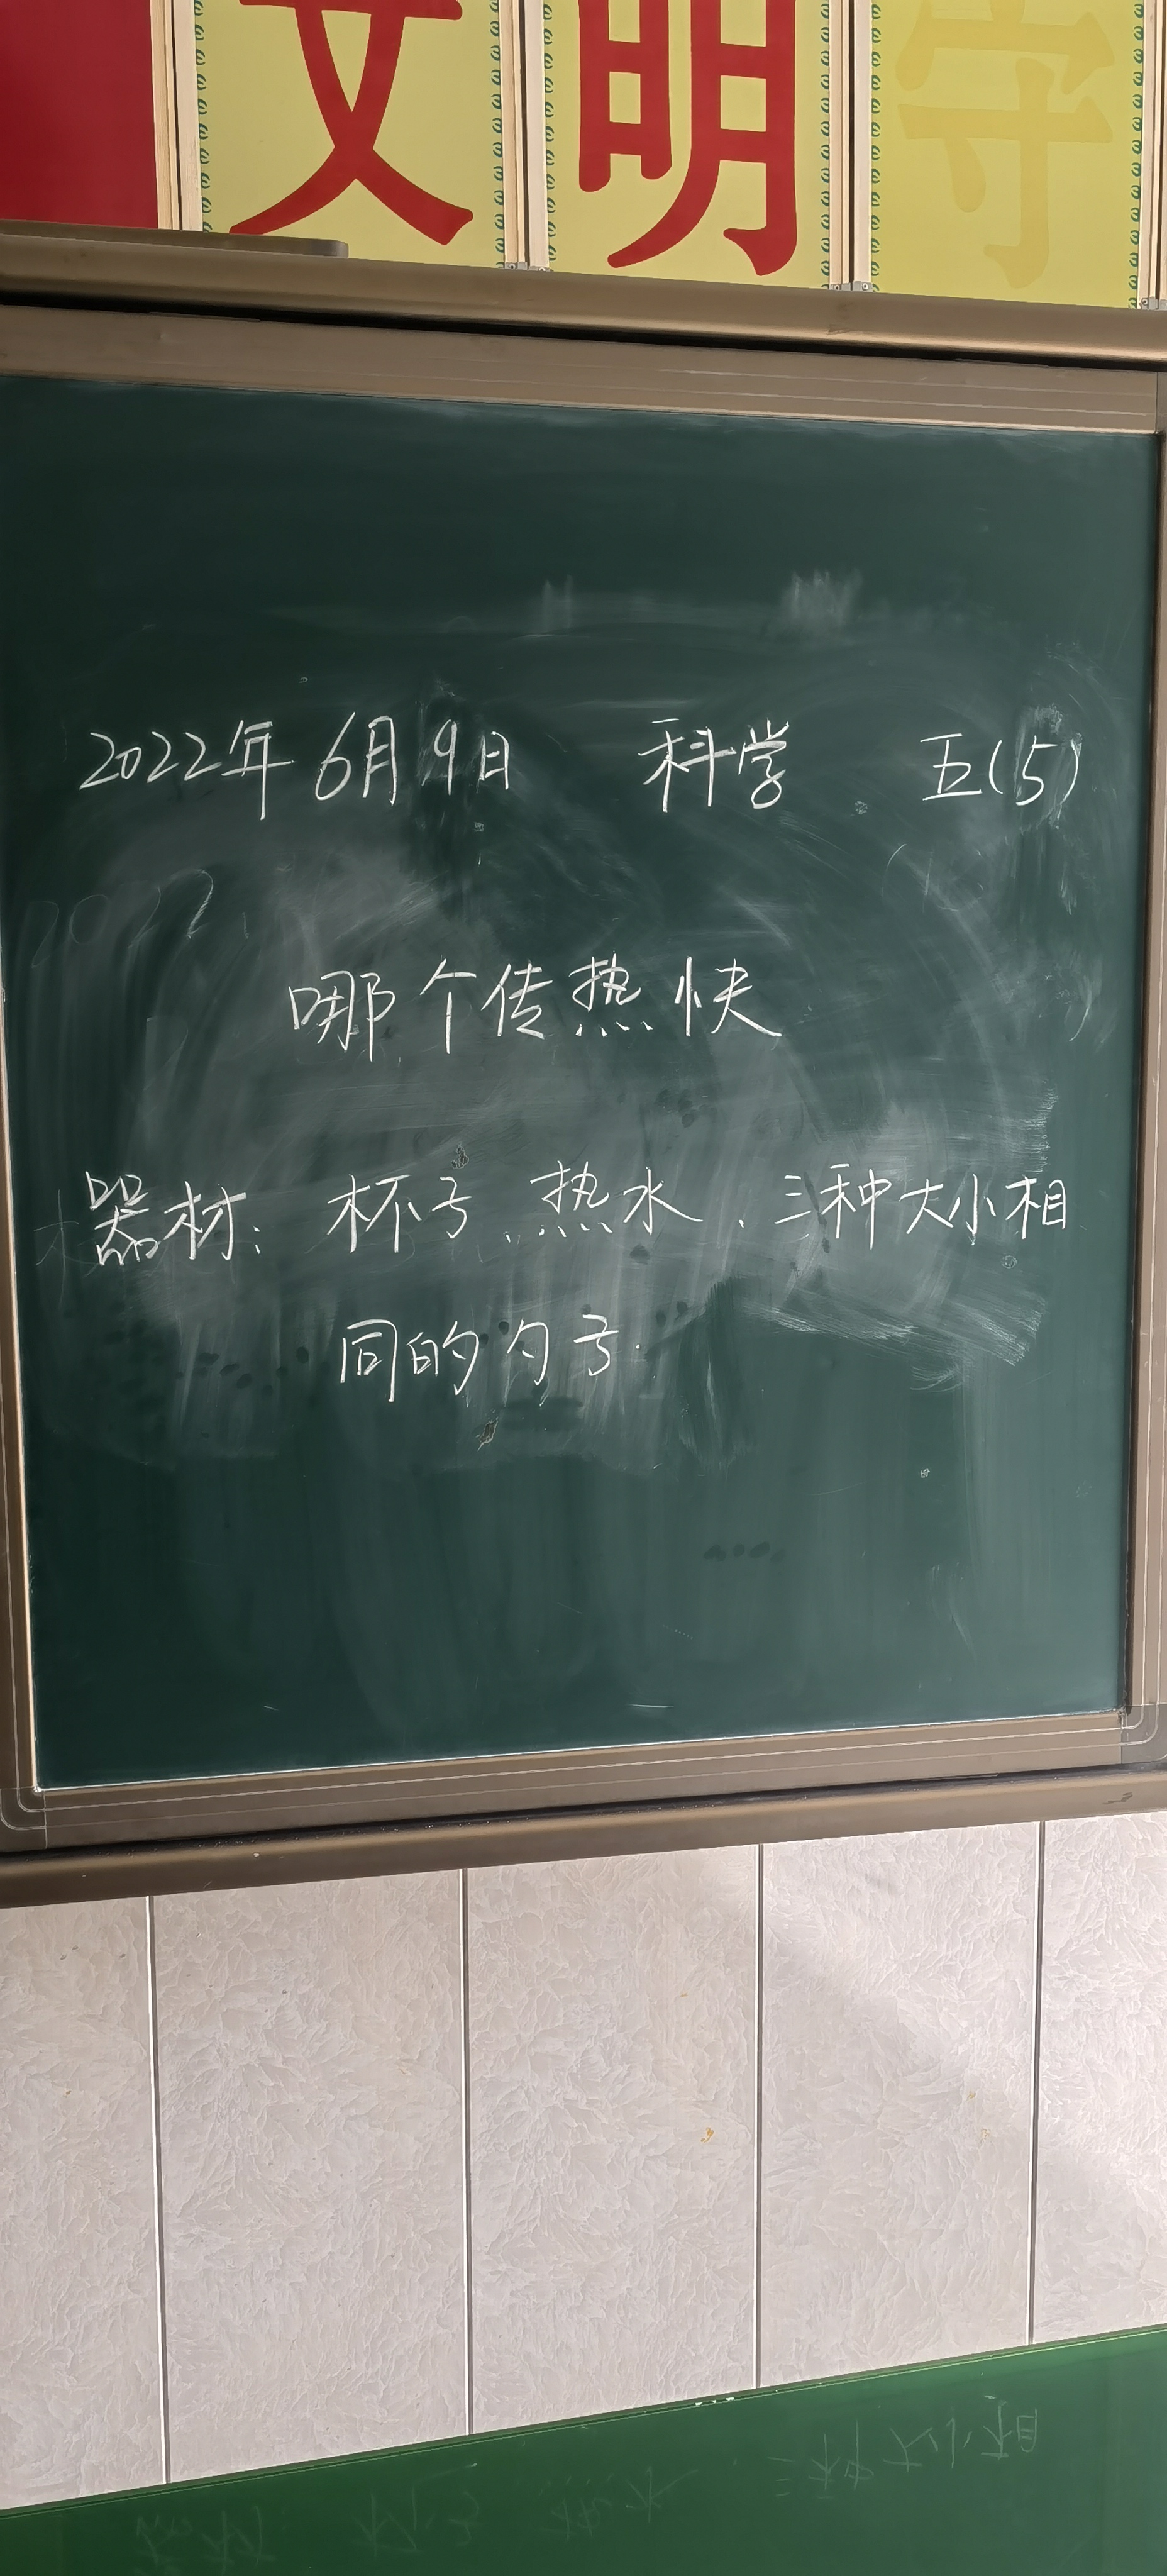 文明守
2022年6月9日 科学 五(5)
2022.
哪个传热快
器材：杯子、热水、三种大小相
同的勺子.